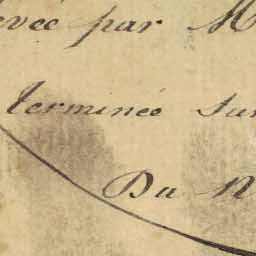 evée par M
terminée sur
Du N